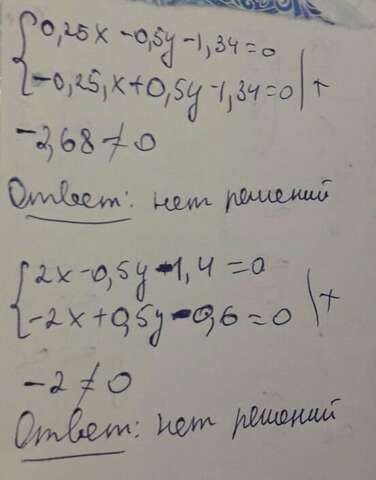 0,25x - 0,5y - 1,34 = 0
-0,25,x + 0,5y - 1,34 = 0 | +
-2,68 ≠ 0
Ответ: нет решений
2x - 0,5y - 1,4 = 0
-2x + 0,5y - 0,6 = 0 | +
-2 ≠ 0
Ответ: нет решений